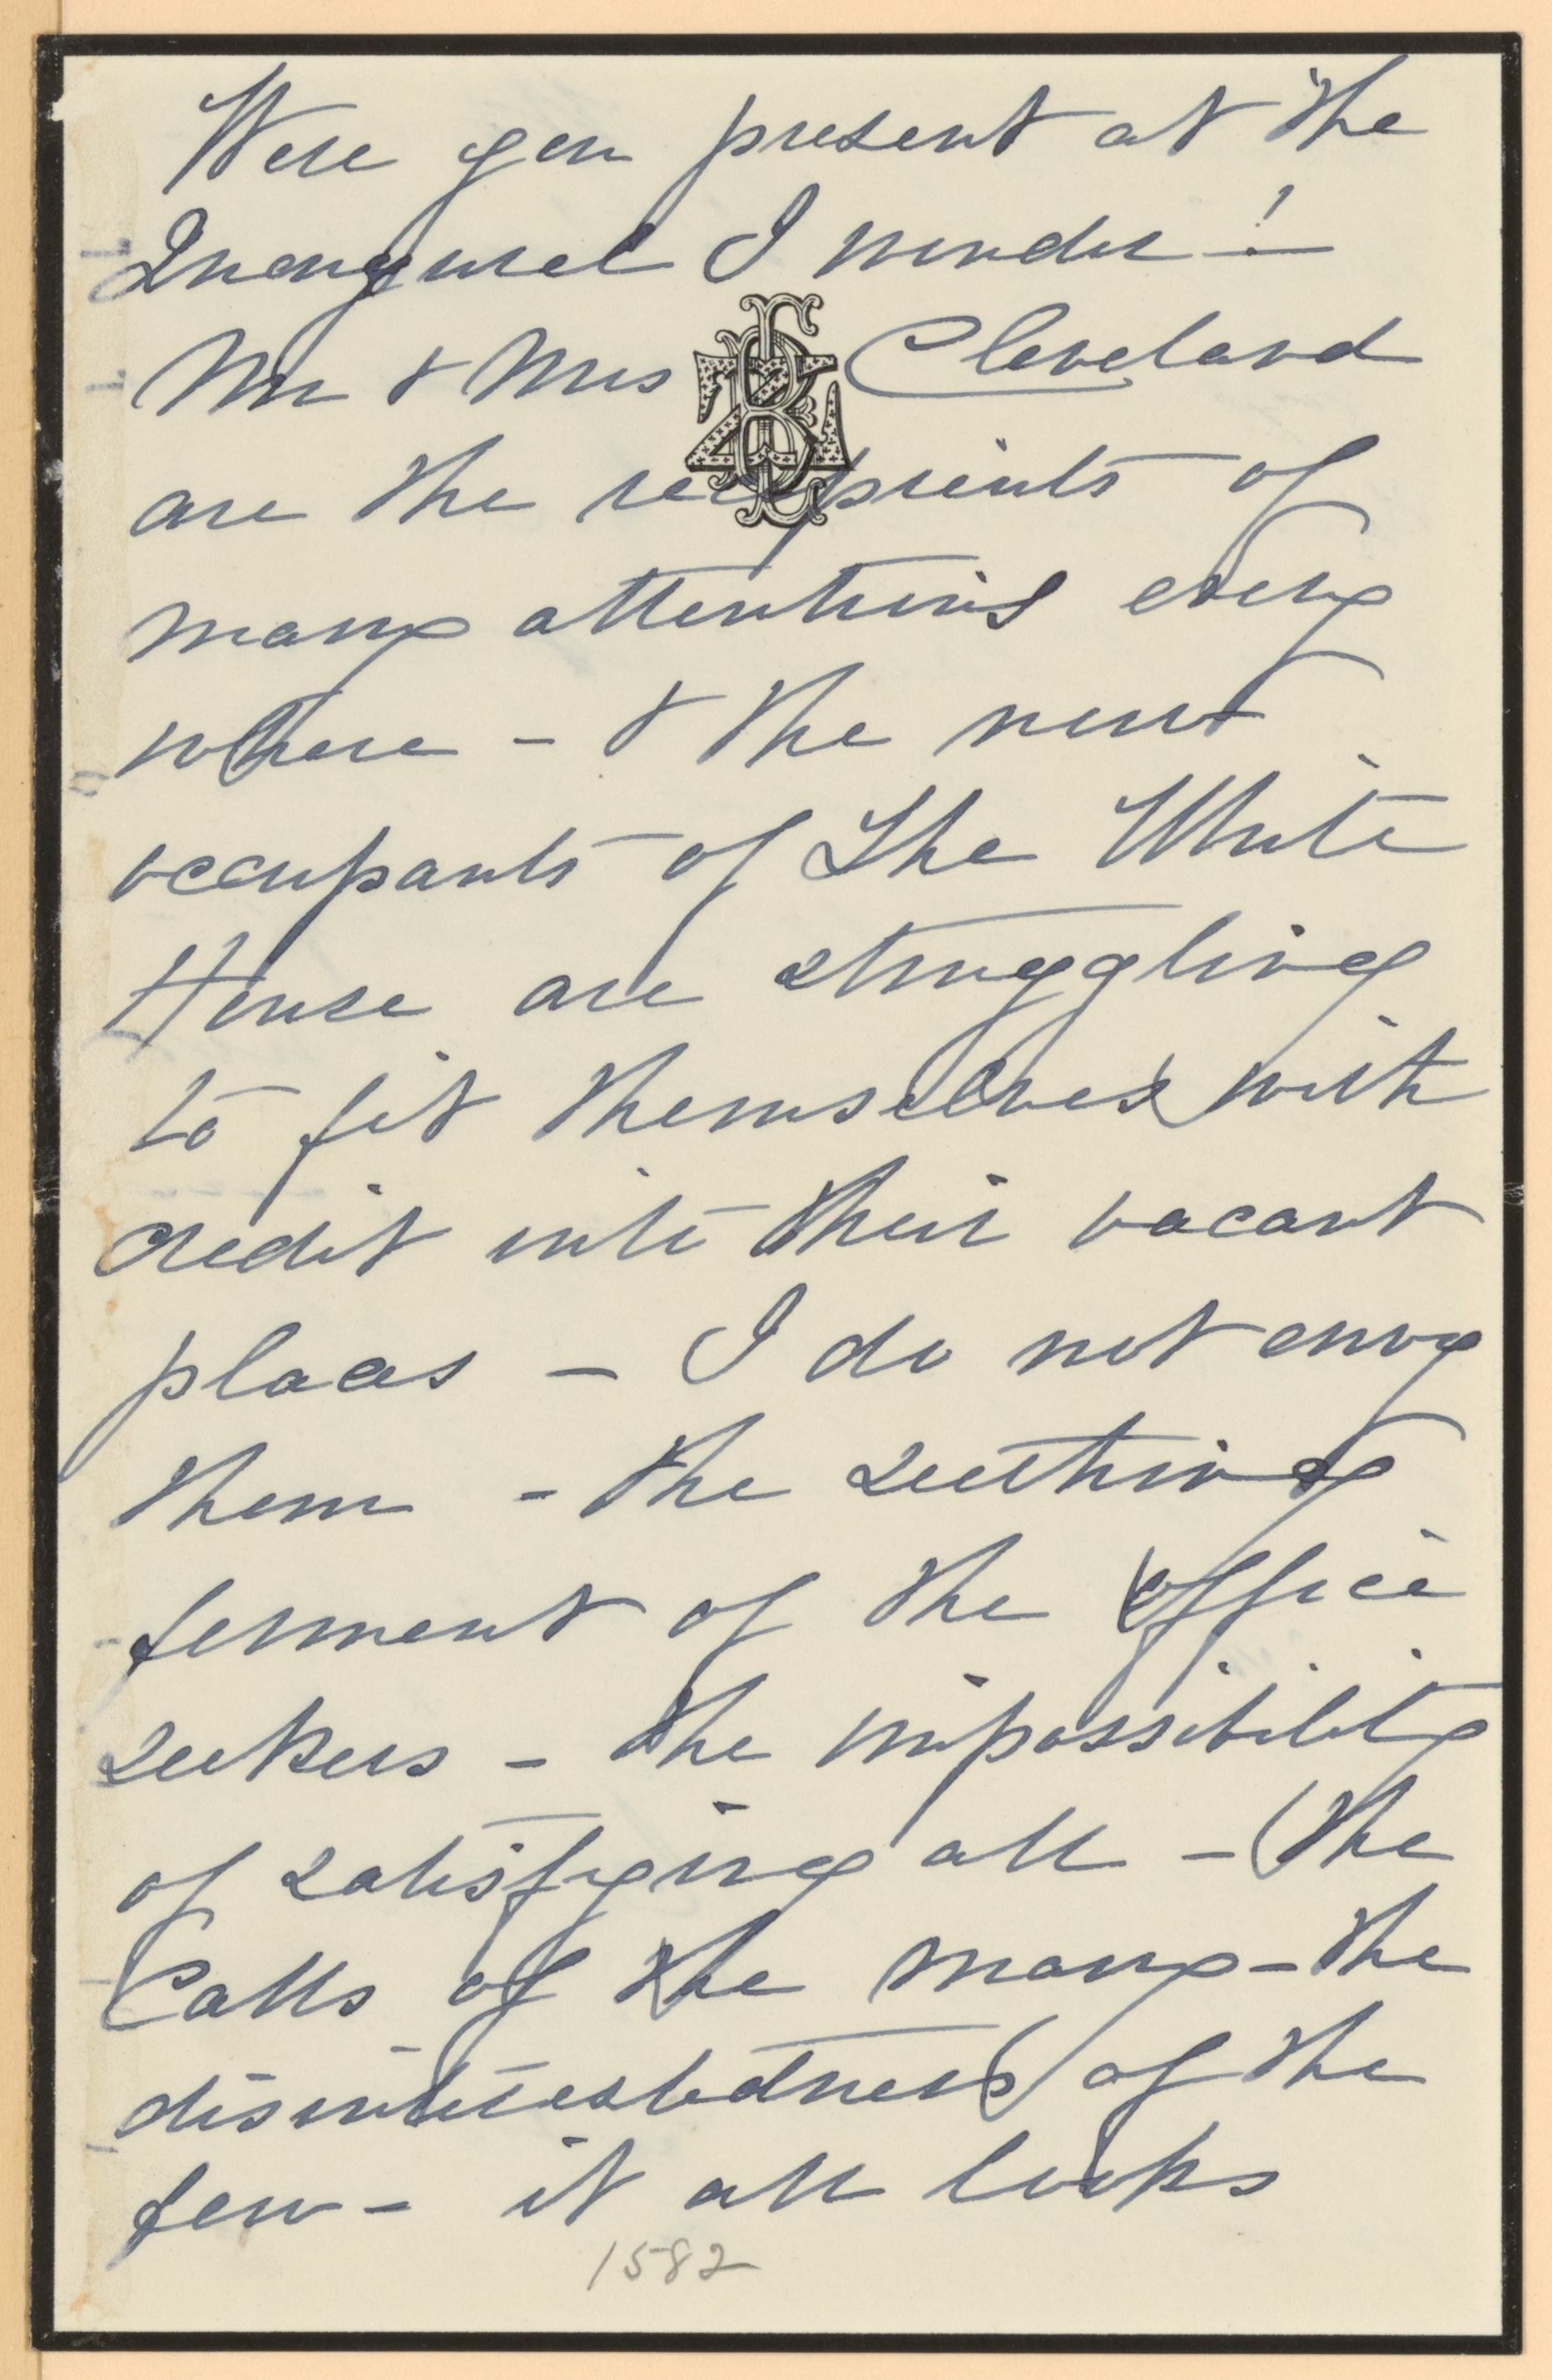 Were you present at the
Inaugural I wonder!
Mr & Mrs Cleveland
are the recipients of
many attentions every
where - & the new
occupants of The White
House are struggling
to fit themselves with
credit into their vacant
places - I do not envy
them - the seething
ferment of the office
seekers - the impossibility
of satisfying all - the
Calls of the many - the
disinterestedness of the
few - it all looks
1582